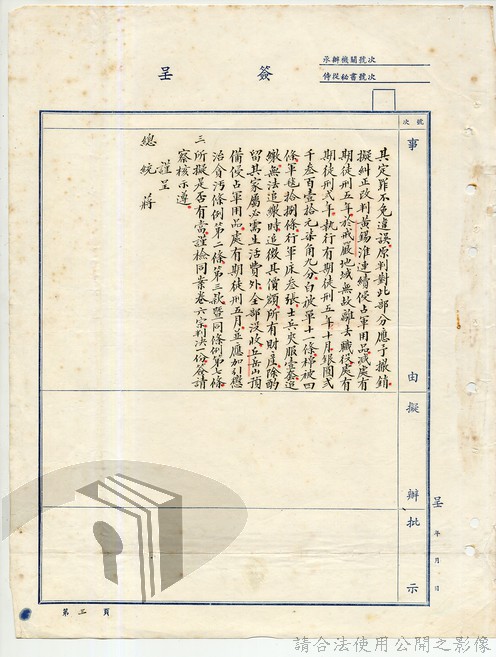 簽呈
承辦機關號次
侍從秘書號次
號次
事由
擬辦
批示
其定罪不免違誤原判對此部分應予撤銷
擬糾正改判黃錫淮連續侵占軍用品減處有
期徒刑五年於戒嚴地域無故離去職役處有
期徒刑弍年執行有期徒刑五年十月銀圓弍
千叁百壹拾元柒角九分白被單十一條棉被四
條軍毯拾捌條行軍床叁張士兵夾服壹套追
繳無法追繳時追徵其價額所有財產除酌
留其家屬必需生活費外全部沒收丘岳山頂
備侵占軍用品處有期徒刑五月並應加引懲
治貪污條例第二條第三款暨同條例第七條
三所擬是否有當謹檢同案卷六宗判決一份簽請
察核示遵
謹呈
總統蔣
呈
年月日
第三頁
請合法使用公開之影像